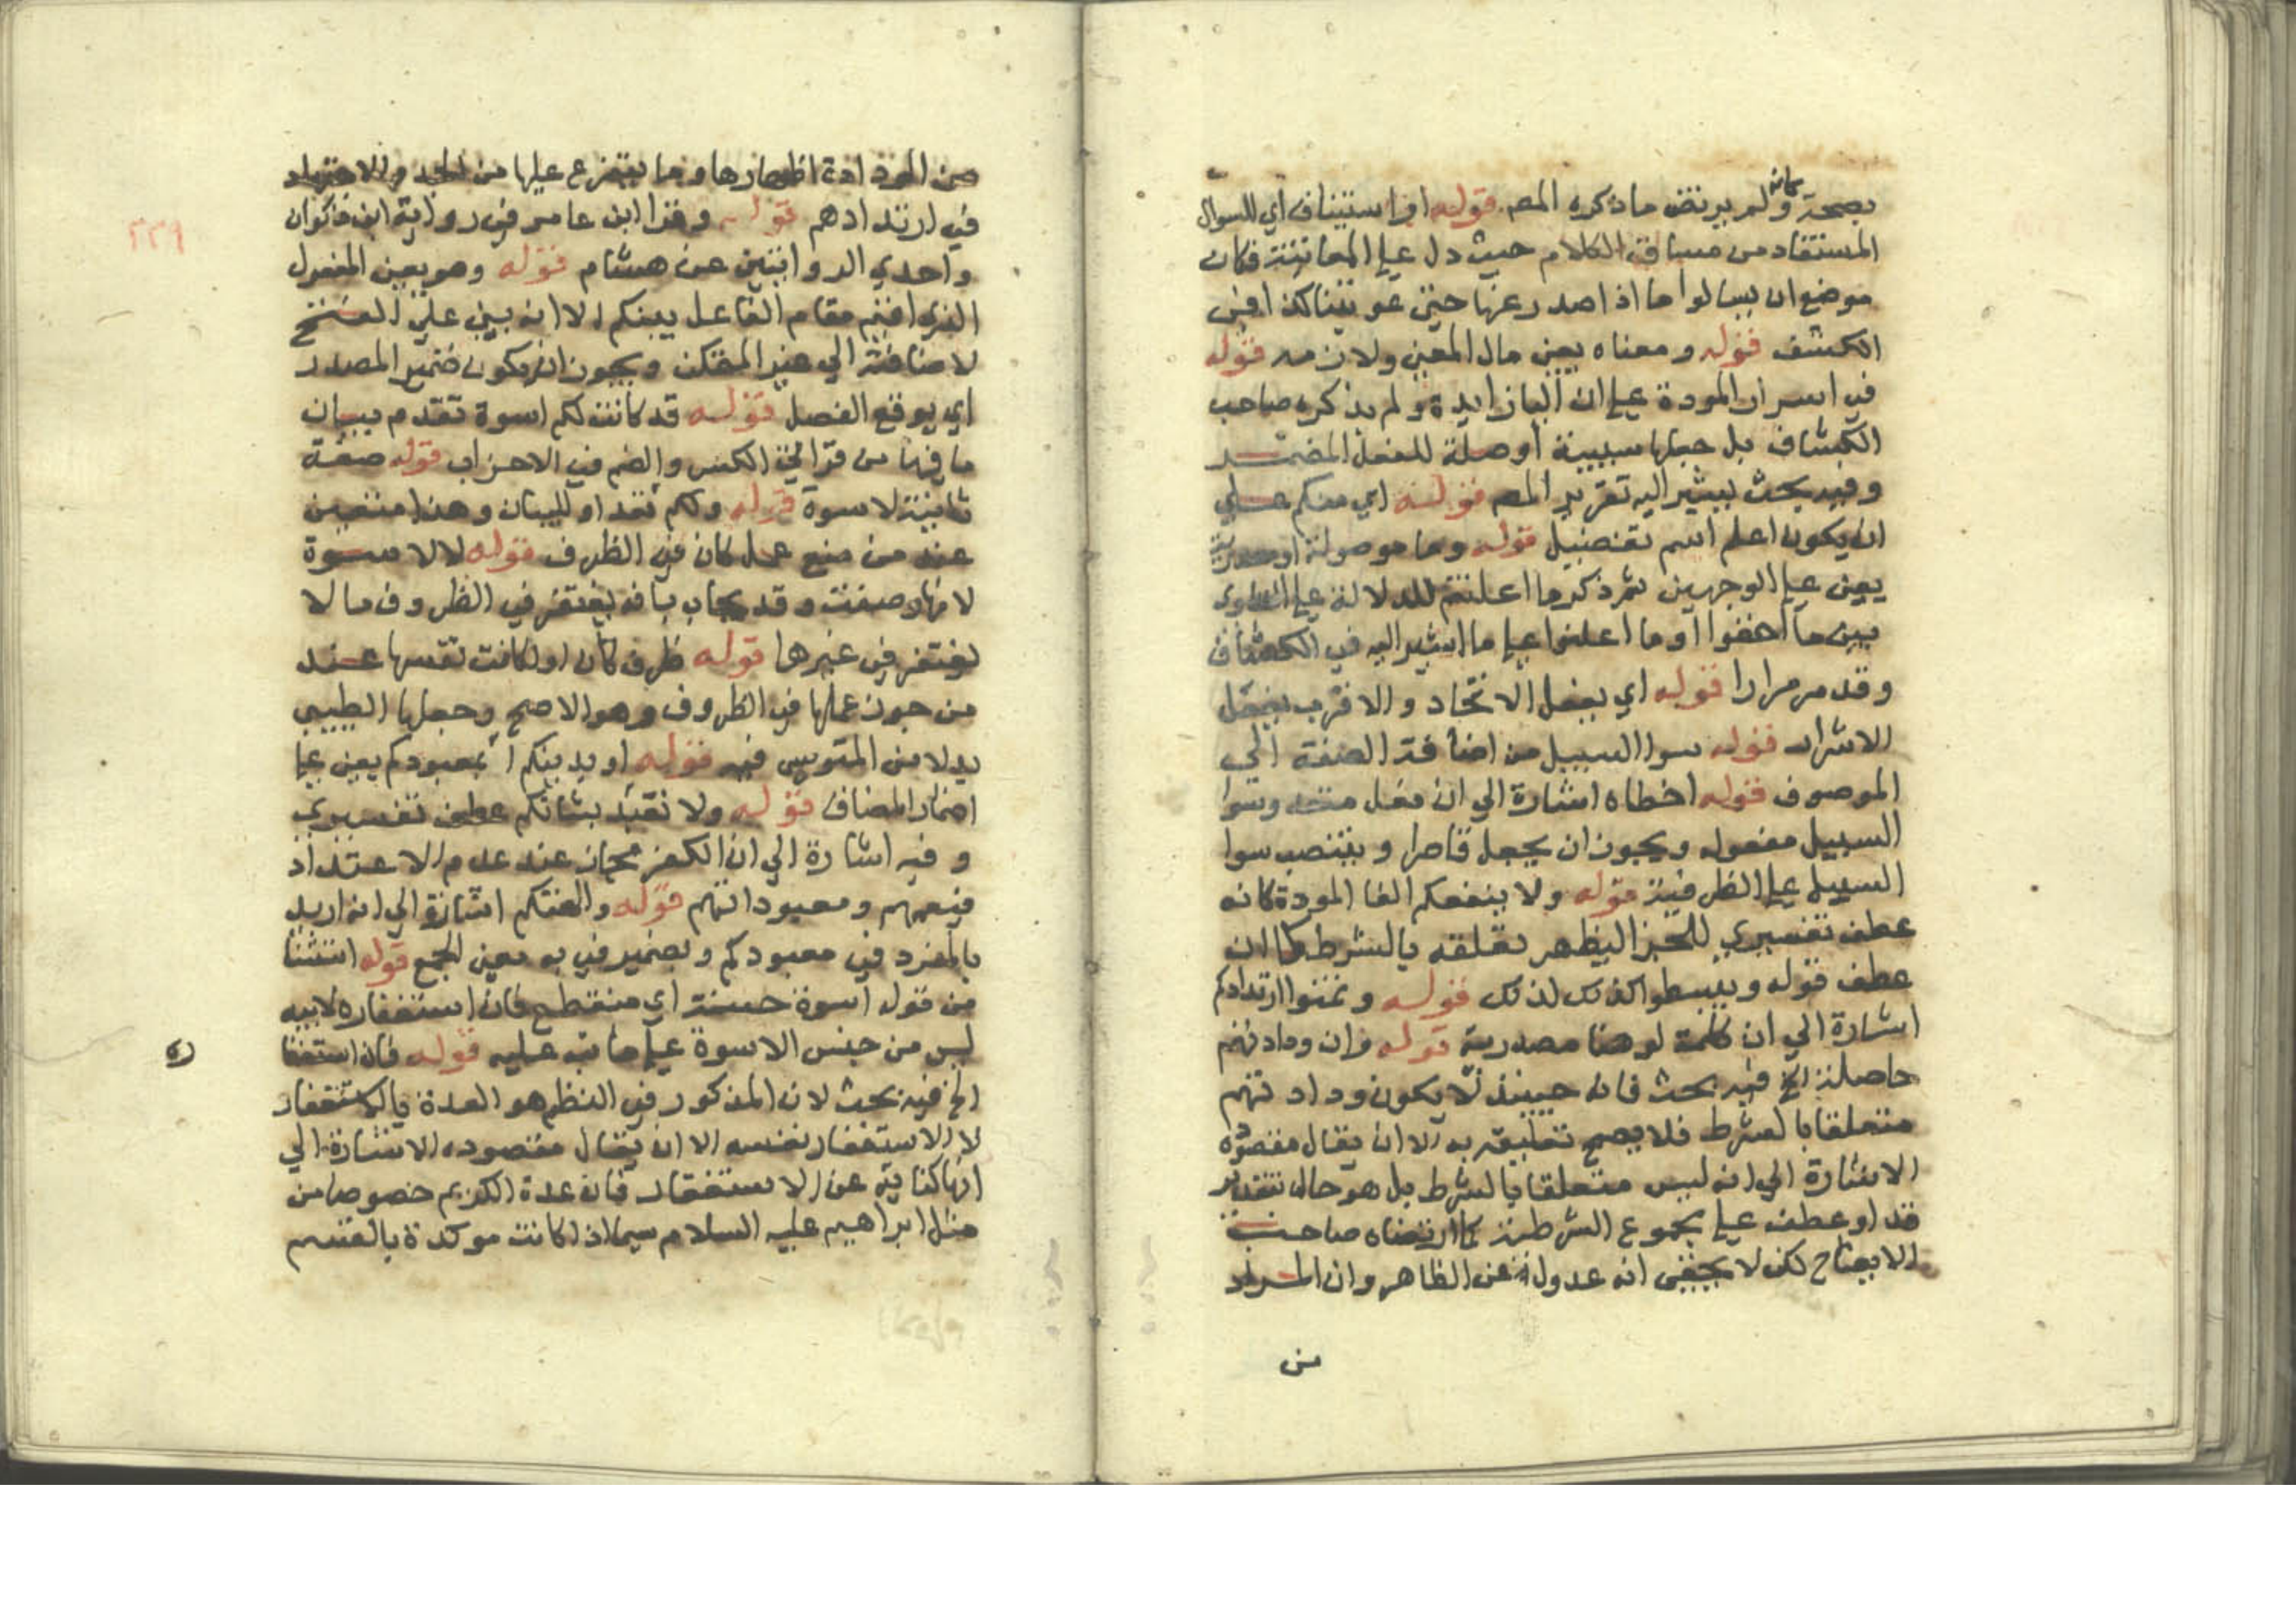 بصحته ولم يرتض ما ذكره المص قوله او استيناف اي للسوال
المستفاد من مساق الكلام حيث دل على المعاتبة فكان
موضع ان يسالوا ماذا صدر عنا حتى عوتبنا كذا في
الكشف قوله ومعناه يعني مال المعنى ولازمه قوله
في اسرار المودة على ان البا زايدة ولم يذكره صاحب
الكشاف بل جعلها سببية او صلة للفعل المضمر
وفيه بحث يشير اليه تقرير المص قوله اي منكم على
ان يكون اعلم اسم تفضيل قوله وما موصولة او مصدرية
يعني على الوجهين ثم ذكر ما اعلنتم للدلالة على التساوي
بين ما اخفوا وما اعلنوا على ما اشير اليه في الكشاف
وقد مر مرارا قوله اي يفعل الاتخاد والاقرب يفعل
الاسرار قوله سوا السبيل من اضافة الصفة الى
الموصوف قوله اخطاه اشارة الي ان فعل متعد وسوا
السبيل مفعوله ويجوز ان يجعل قاصرا وينتصب سوا
السبيل على الظرفية قوله ولا ينفعكم القا المودة كانه
عطف تفسيري للخبر ليظهر تعلقه بالشرط كما ان
عطف قوله ويبسطوا كذلك لذلك قوله وتمنوا ارتدادكم
اشارة الي ان كلمة لو هنا مصدرية قوله وان ودادتهم
حاصلة الخ فيه بحث فانه حينئذ لا يكون ودادتهم
متعلقا بالشرط فلا يصح تعليقه به الا ان يقال مقصوده
الاشارة الي انه ليس متعلقا بالشرط بل هو حال بتقدير
قد او عطف على مجموع الشرطية كما ارتضاه صاحب
الايضاح لكن لا يخفى انه عدول عن الظاهر وان المراد
من
٣٣٩
من الودادة اظهارها وما يتفرع عليها من الجد والاجتهاد
في ارتدادهم قوله وقرا ابن عامر في رواية ابن ذكوان
واحدي الروايتين عن هشام قوله وهو يعني المفعول
الذي اقيم مقام الفاعل بينكم الا انه بني على الفتح
لاضافته الي غير المتمكن ويجوز ان يكون ضمير المصدر
اي يوقع الفصل قوله قد كانت لكم اسوة تقدم بيان
ما فيها من قراتي الكسر والضم في الاحزاب قوله صفة
ثانية لاسوة قوله ولكم لغو او للبيان وهذا متعين
عند من منع عمل كان في الظرف قوله لا لاسوة
لانها وصفت وقد يجاب بانه يغتفر في الظروف ما لا
يغتفر في غيرها قوله ظرف كان او لكانت نفسها عند
من جوز عملها في الظروف وهو الاصح وجعلها الطيبي
بدلا من المتوسي فيه قوله او بدينكم او بمعبودكم يعني على
اضمار المضاف قوله ولا نعتد بشانكم عطف تفسيري
وفيه اشارة الي ان الكفر مجاز عند عدم الاعتداد
فيعمهم ومعبوداتهم قوله والهتكم اشارة الي انه اريد
بالمفرد في معبودكم وبضمير في به معنى الجمع قوله استثنا
من قوله اسوة حسنة اي منقطع فان استغفاره لابيه
ليس من جنس الاسوة على ما نبه عليه قوله فان استغفا
الخ فيه بحث لان المذكور في النظم هو العدة بالاستغفار
لا الاستغفار نفسه الا ان يقال مقصوده الاشارة الي
انها كناية عن الاستغفار فان عدة الكريم خصوصا من
مثل ابراهيم عليه السلام سيما اذا كانت موكدة بالقسم